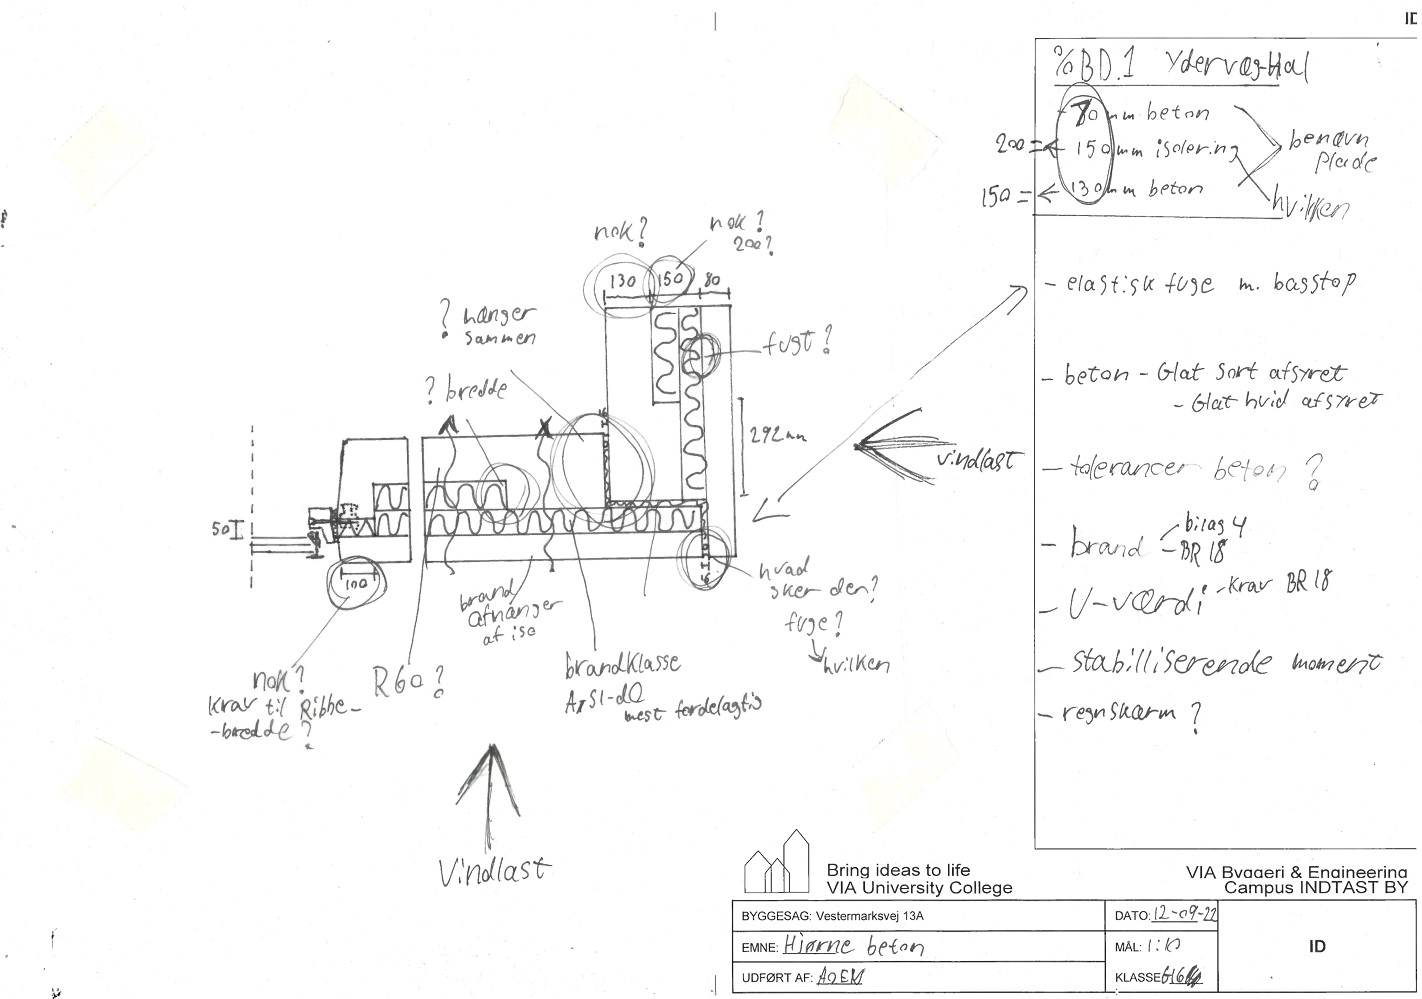 ID
% BD.1 Ydervæg-Hal
- 70 mm beton
200 = ← 150 mm isolering
150 = ← 130 mm beton
benævn
plade
hvilken
- elastisk fuge m. bagstop
- beton - Glat sort afsyret
- Glat hvid afsyret
- tolerancer beton ?
- brand - bilag 4
- BR 18
- U-værdi - Krav BR 18
- Stabilliserende moment
- regnskærm ?
nok?
nok?
200?
130 150 80
? hænger
sammen
fugt ?
? bredde
16
292mm
vindlast
50
100
16
hvad
sker der?
fuge?
hvilken
brand
afhænger
af iso
brandklasse
mest fordelagtig
R60 ?
nok?
Krav til Ribbe-
-bredde ?
Vindlast
Bring ideas to life
VIA University College
VIA Byggeri & Engineering
Campus INDTAST BY
BYGGESAG: Vestermarksvej 13A
DATO: 12-09-22
EMNE: Hjørne beton
MÅL: 1:10
ID
UDFØRT AF:
KLASSE